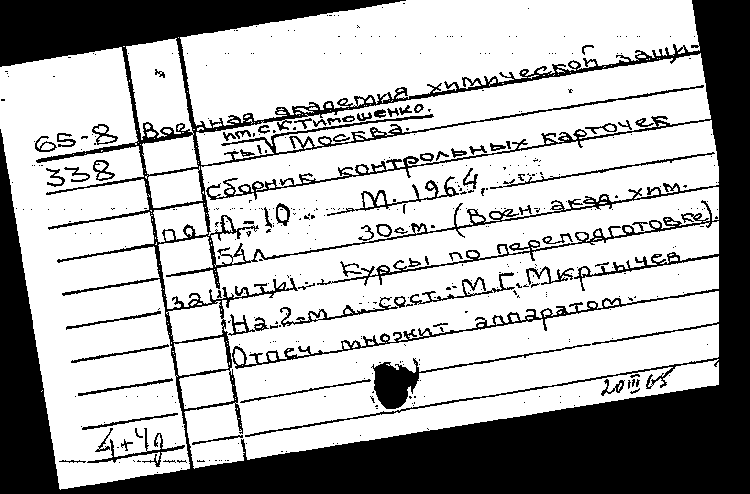 65-8 Военная академия химической защи-
им. С.К. Тимошенко.
ты √ Москва.
338
Сборник контрольных карточек
по Д-10 М., 1964,
54 л. 30см. (Воен. акад. хим.
защиты. Курсы по переподготовке).
На 2-м л. сост.: М.Г. Мкртычев
Отпеч. множит. аппаратом.
20 III 65
4+4д